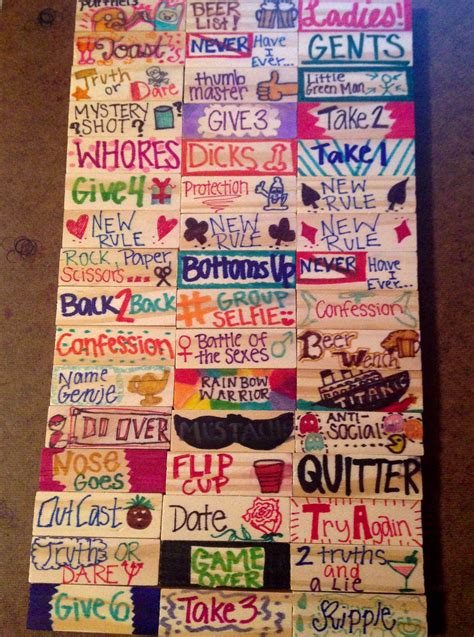 partners
BEER
LIST!
Ladies!
Toast
NEVER Have
I
Ever...
GENTS
Truth
or Dare
thumb
master
Little
Green Man
MYSTERY
?SHOT?
GIVE 3
Take 2
WHORES
Dicks
Take 1
Give 4
Protection
NEW
RULE
NEW
RULE
NEW
RULE
NEW
RULE
ROCK, Paper
Scissors...
Bottoms Up
NEVER Have
I Ever...
Back 2 Back
# GROUP
SELFIE
Confession
Confession
Battle of
the Sexes
Beer
Wench
Name
Genije
RAINBOW
WARRIOR
TITANIC
DO OVER
MUSTACHE
ANTI-
Social
Nose
Goes
FLIP
CUP
QUITTER
Out Cast
Date
Try Again
Truth OR
DARE
GAME
OVER
2 truths
and a
Lie
Give 6
Take 3
Ripple